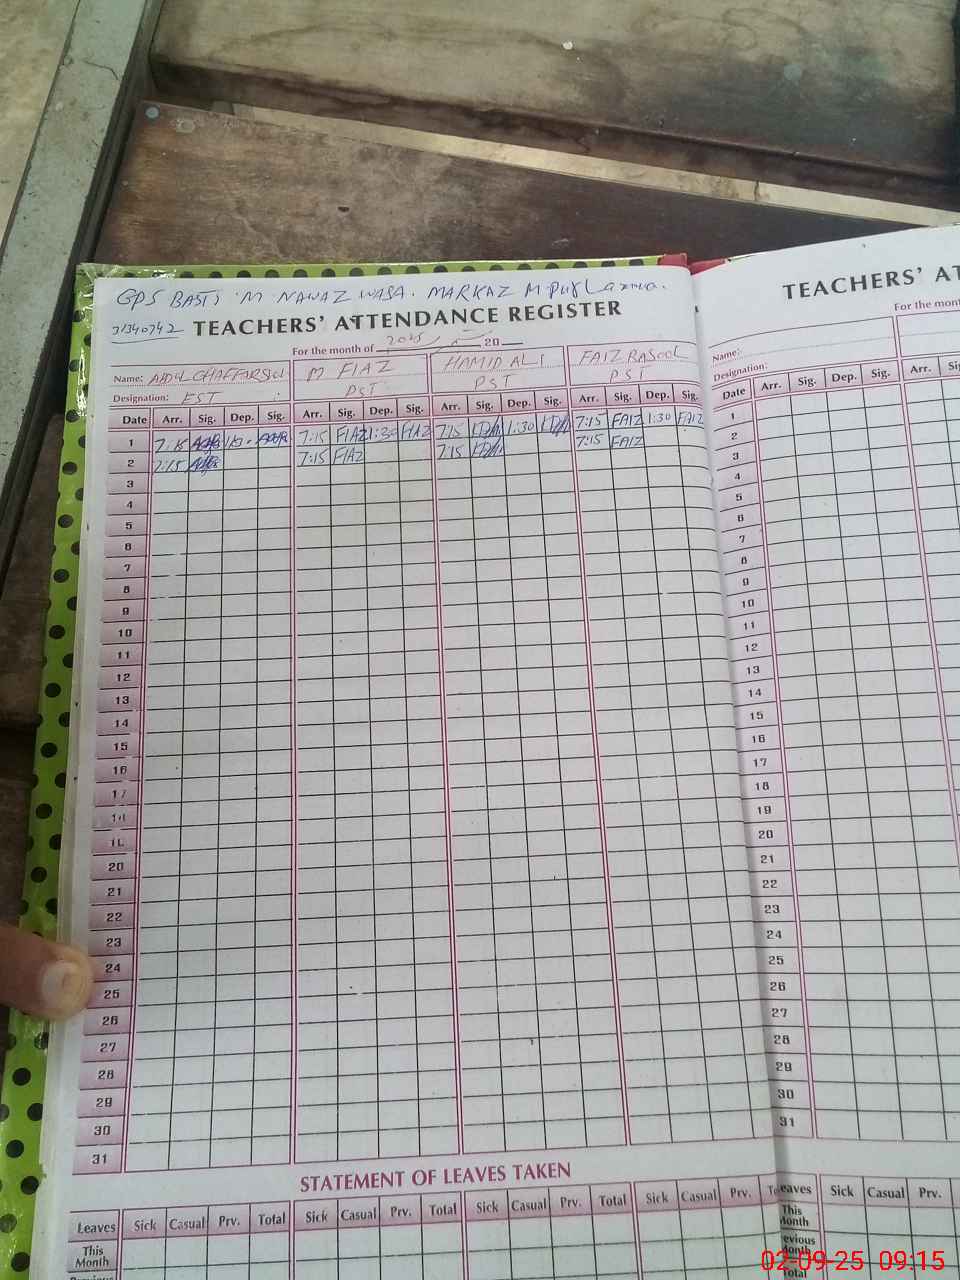 GPS BASTI M NAWAZ WASA. MARKAZ M.pur
31340742
TEACHERS' ATTENDANCE REGISTER
For the month of 2025 20
Name: ABDUL GHAFFAR M FIAZ HAMID ALI FAIZ RASOOL
Designation: EST PST PST PST
Date Arr. Sig. Dep. Sig. Arr. Sig. Dep. Sig. Arr. Sig. Dep. Sig. Arr. Sig. Dep. Sig.
1 7:15 7:15 FIAZ 1:30 FIAZ 7:15 1:30 7:15 FAIZ 1:30 FAIZ
2 7:15 7:15 FIAZ 7:15 7:15 FAIZ
3
4
5
6
7
8
9
10
11
12
13
14
15
16
17
18
20
21
22
23
24
25
26
27
28
29
30
31
STATEMENT OF LEAVES TAKEN
Leaves Sick Casual Prv. Total Sick Casual Prv. Total Sick Casual Prv. Total Sick Casual Prv.
This Month
TEACHERS' AT
For the mont
Name:
Designation:
Date Arr. Sig. Dep. Sig. Arr. Sig.
1
2
3
4
5
6
7
8
9
10
11
12
13
14
15
16
17
18
19
20
21
22
23
24
25
26
27
28
29
30
31
eaves Sick Casual Prv.
This Month
evious Month
Total
02-09-25 09:15